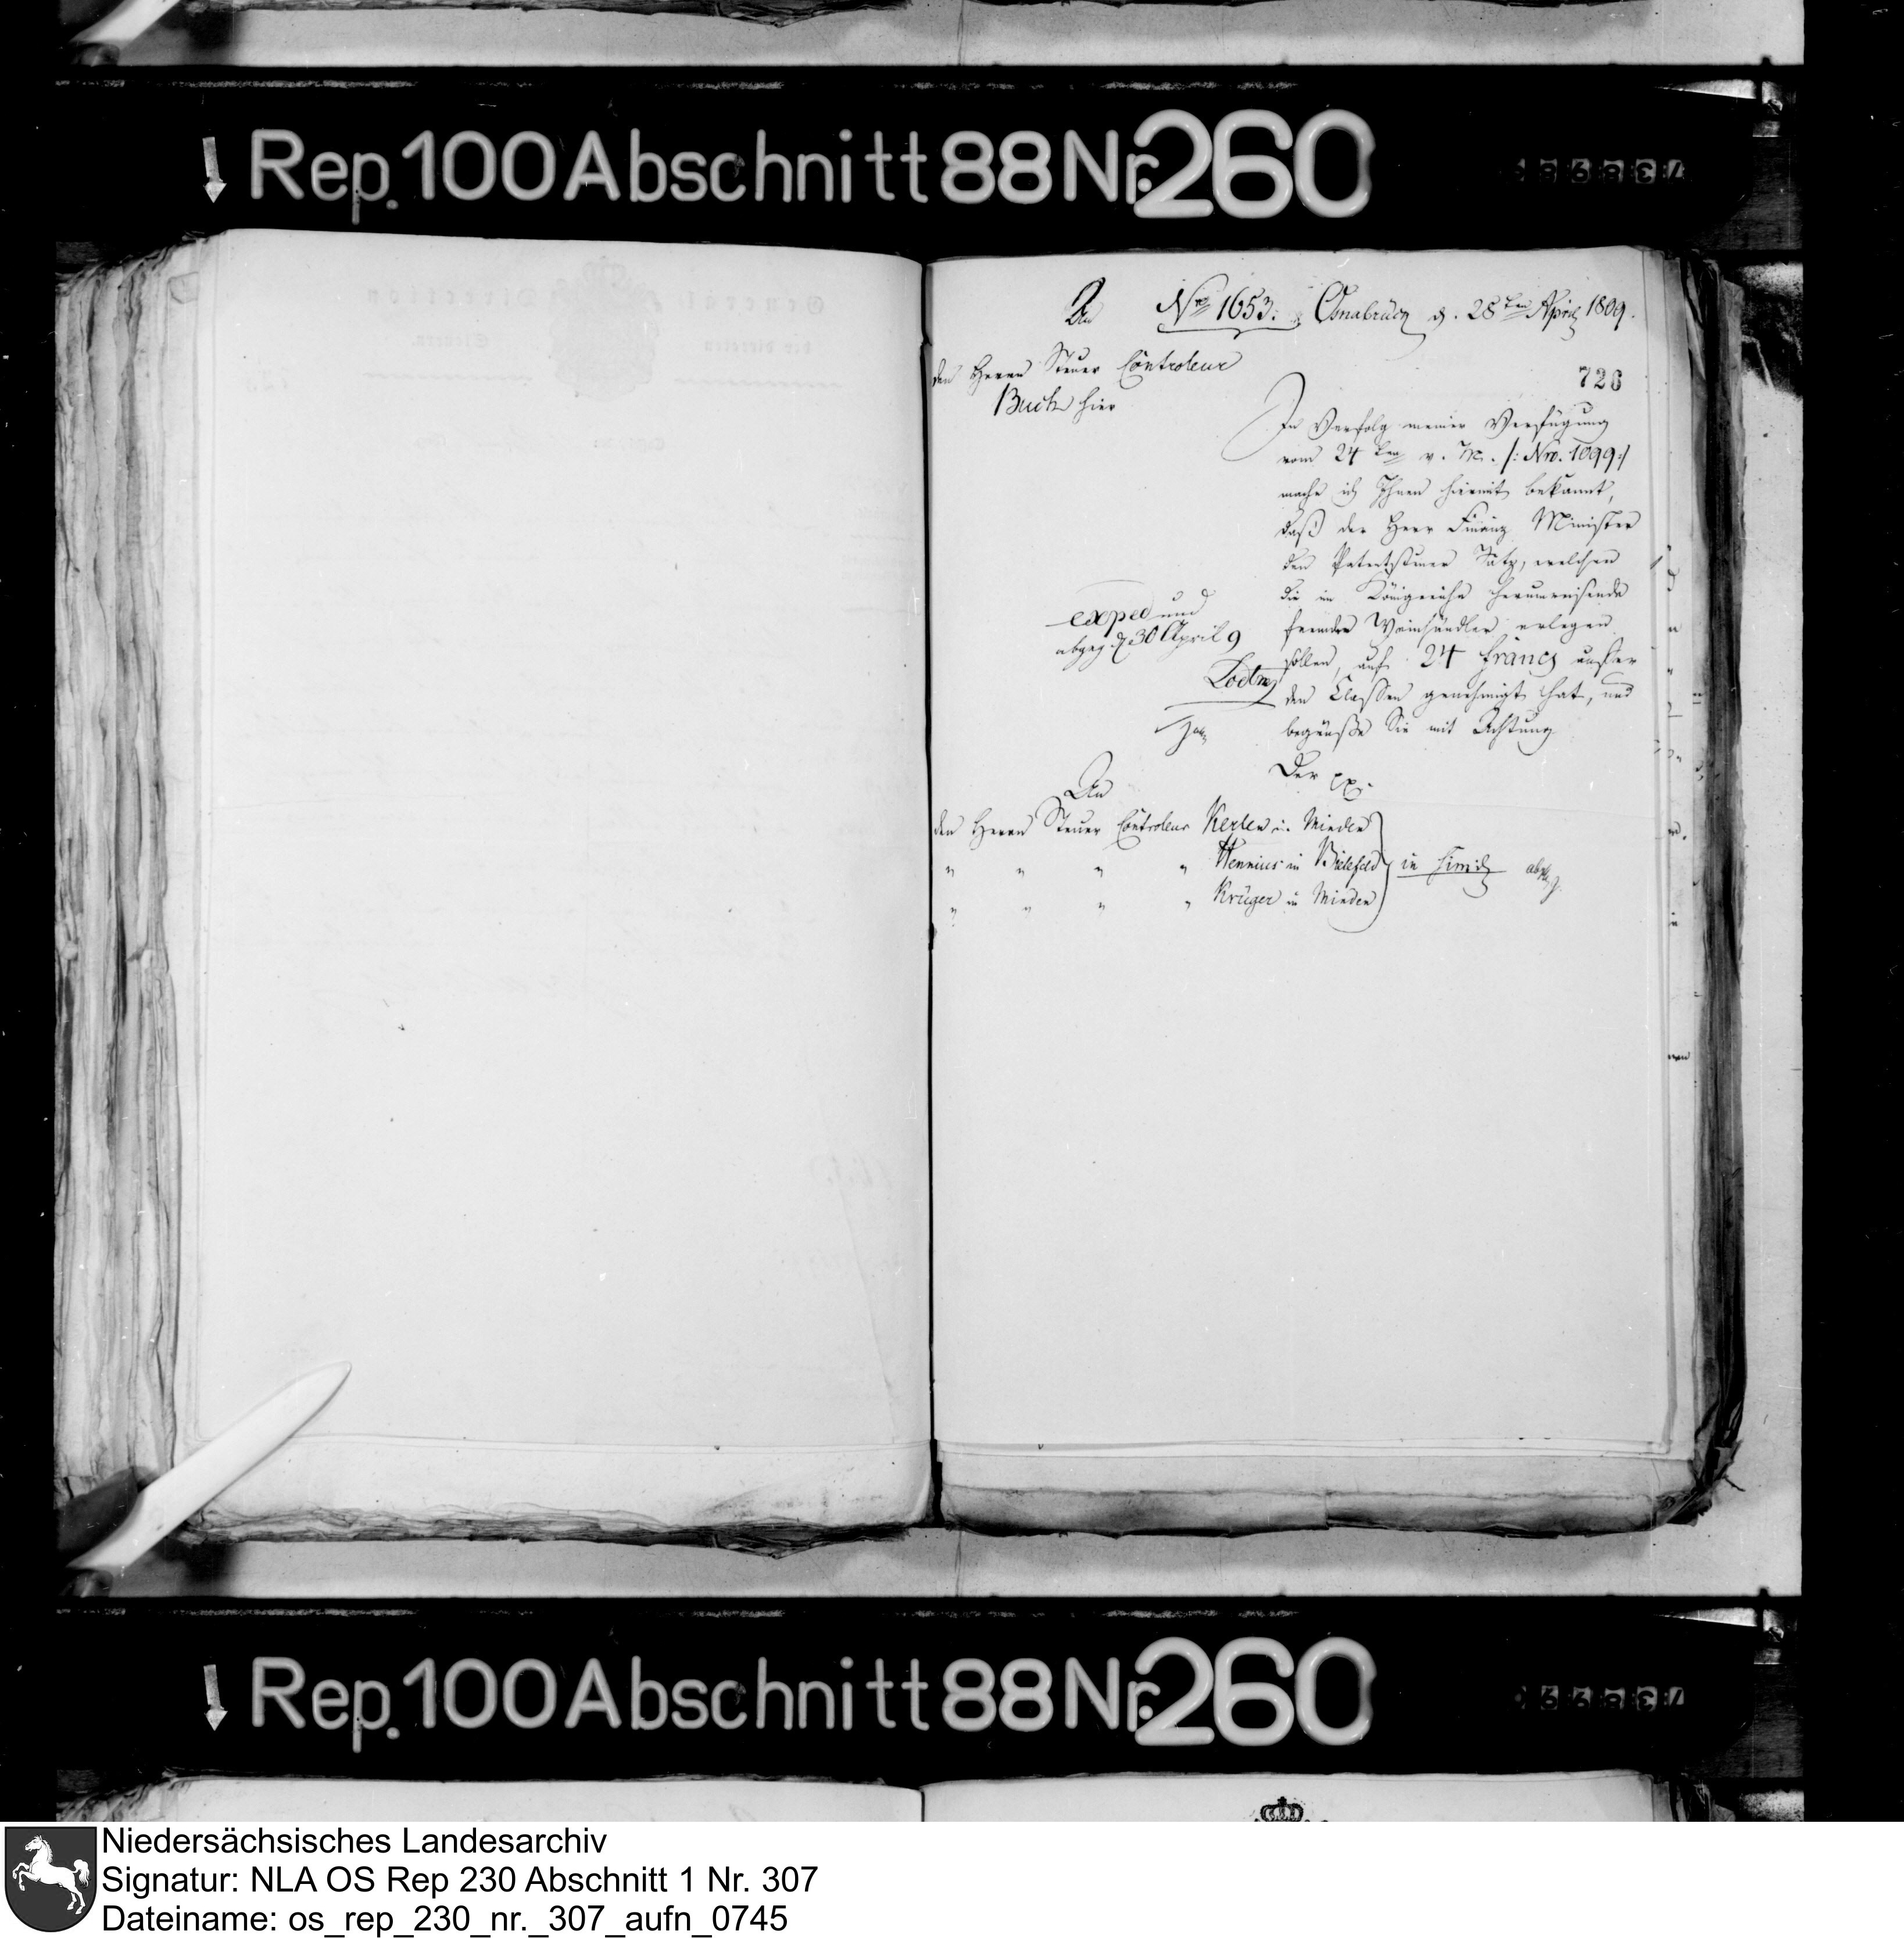 Rep. 100 Abschnitt 88 Nr. 260
An
Nro 1653.
Osnabrück d. 28ten April 1809.
den Herrn Steuer Controleur
Buch hier
726
In Verfolg meiner Verfügung
vom 24ten v. M. /: Nro. 1099:/
mache ich Ihnen hiermit bekannt,
daß der Herr Finanz Minister
den Patentsteuer Satz, welchen
die im Königreiche herumreisende
fremde Weinhändler erlegen
sollen, auf 24 francs ausser
den Classen genehmigt hat, und
begrüße Sie mit Achtung
Der
exped und
abgeg d 30 April 9
An
den Herrn Steuer Controleur Kerlen in Minden
" " " " Wennius in Bielefeld
" " " " Krüger in Minden
in simili
Rep. 100 Abschnitt 88 Nr. 260
Niedersächsisches Landesarchiv
Signatur: NLA OS Rep 230 Abschnitt 1 Nr. 307
Dateiname: os_rep_230_nr._307_aufn_0745